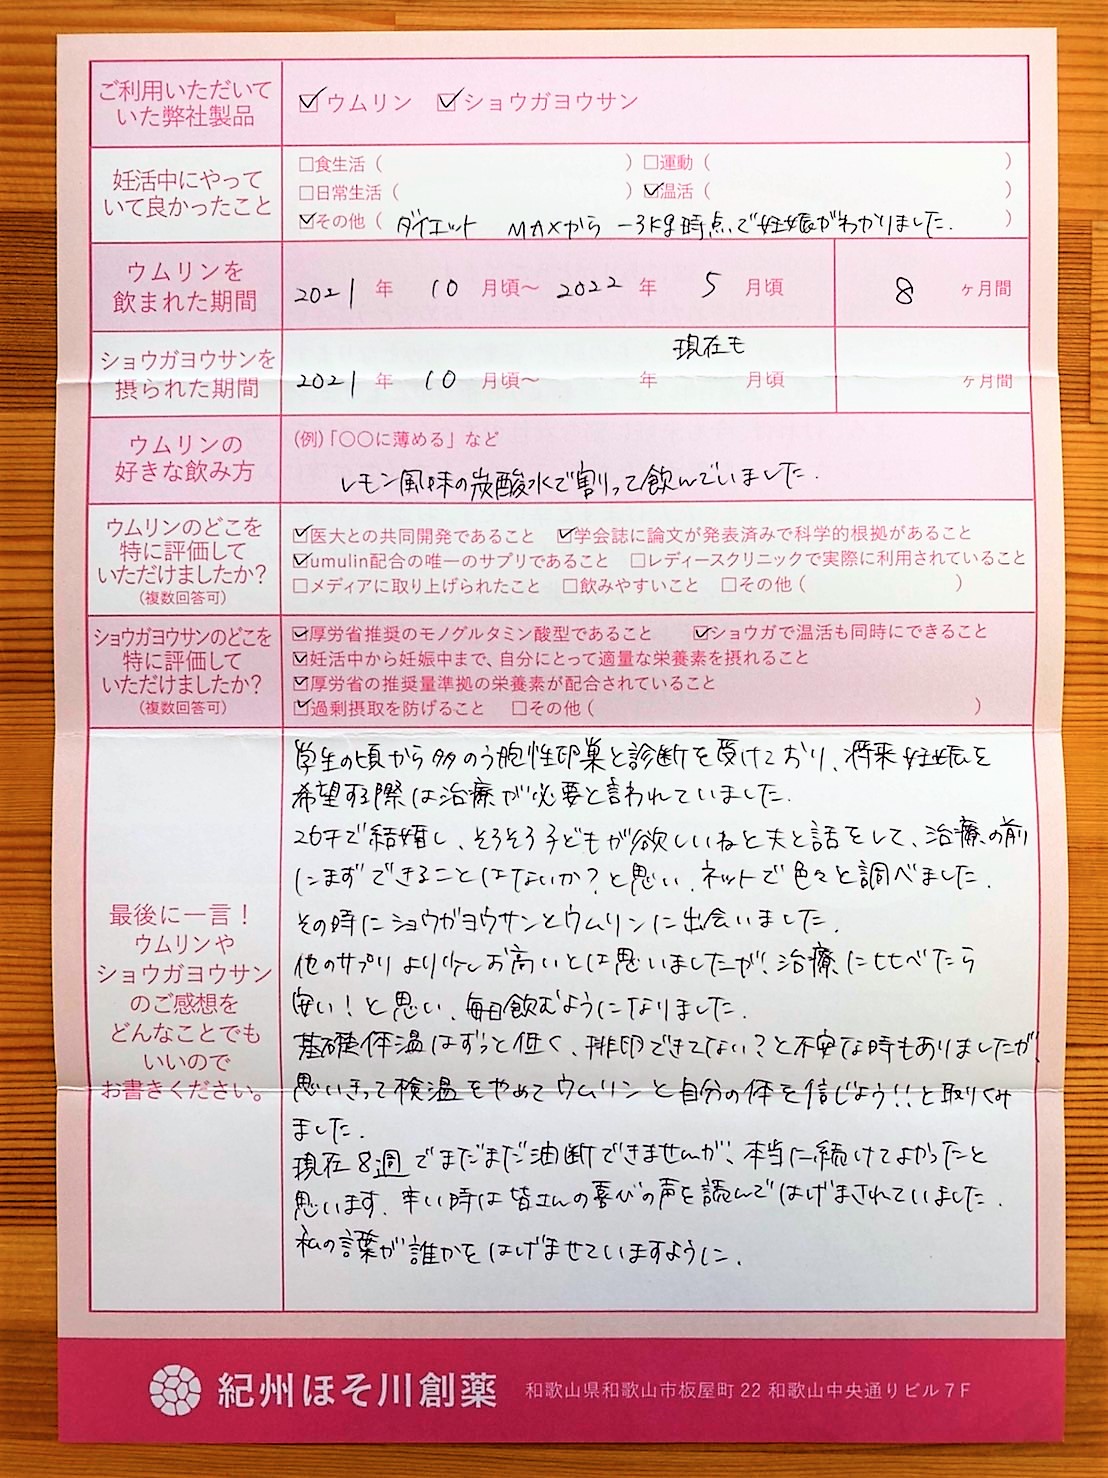 ご利用いただいて
いた弊社製品
☑ウムリン ☑ショウガヨウサン
妊活中にやって
いて良かったこと
□食生活（ ）□運動（ ）
□日常生活（ ）☑温活（ ）
☑その他（ ダイエット MAXから −3kg時点で妊娠がわかりました. ）
ウムリンを
飲まれた期間
2021 年 10 月頃〜 2022 年 5 月頃 8 ヶ月間
ショウガヨウサンを
摂られた期間
現在も
2021 年 10 月頃〜 年 月頃 ヶ月間
ウムリンの
好きな飲み方
(例)「○○に薄める」など
レモン風味の炭酸水で割って飲んでいました.
ウムリンのどこを
特に評価して
いただけましたか？
(複数回答可)
☑医大との共同開発であること ☑学会誌に論文が発表済みで科学的根拠があること
☑umulin配合の唯一のサプリであること □レディースクリニックで実際に利用されていること
□メディアに取り上げられたこと □飲みやすいこと □その他（ ）
ショウガヨウサンのどこを
特に評価して
いただけましたか？
(複数回答可)
☑厚労省推奨のモノグルタミン酸型であること ☑ショウガで温活も同時にできること
☑妊活中から妊娠中まで、自分にとって適量な栄養素を摂れること
☑厚労省の推奨量準拠の栄養素が配合されていること
☑過剰摂取を防げること □その他（ ）
最後に一言！
ウムリンや
ショウガヨウサン
のご感想を
どんなことでも
いいので
お書きください。
学生の頃から多のう胞性卵巣と診断を受けており、将来妊娠を
希望する際は治療が必要と言われていました.
26才で結婚し、そろそろ子どもが欲しいねと夫と話をして、治療の前
にまずできることはないか？と思い、ネットで色々と調べました.
その時にショウガヨウサンとウムリンに出会いました.
他のサプリより少しお高いとは思いましたが、治療に比べたら
安い！と思い、毎日飲むようになりました.
基礎体温はずっと低く、排卵できてない？と不安な時もありましたが、
思いきって検温をやめてウムリンと自分の体を信じよう!!と取りくみ
ました.
現在8週でまだまだ油断できませんが、本当に続けてよかったと
思います. 辛い時は皆さんの喜びの声を読んではげまされていました.
私の言葉が誰かをはげませていますように.
紀州ほそ川創薬 和歌山県和歌山市板屋町 22 和歌山中央通りビル 7 F